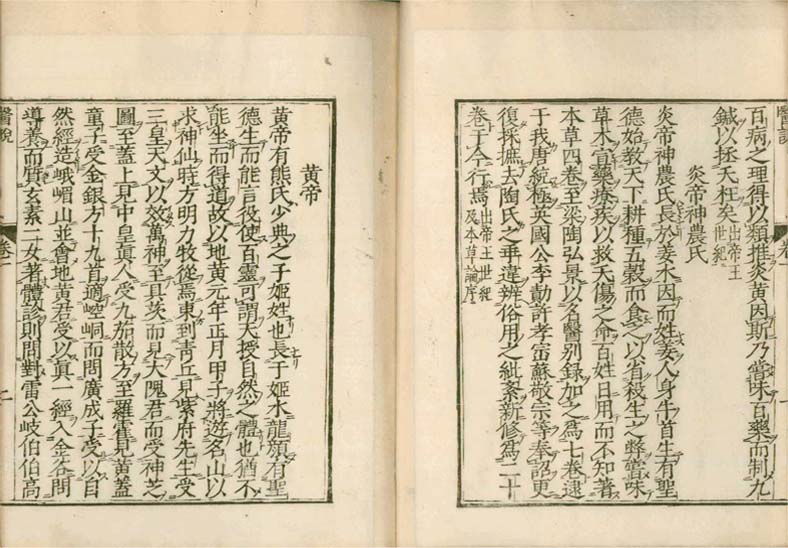 百病之理得以類推炎黄因斯乃嘗味百藥而制九
鍼以拯夭枉矣出帝王
世紀
炎帝神農氏
炎帝神農氏長於姜水因而姓姜人身牛首生有聖
德始教天下耕種五穀而食之以省殺生之弊嘗味
草木宣藥療疾以救夭傷之命百姓日用而不知著
本草四卷至梁陶弘景以名醫別錄加之爲七卷逮
于我唐統極英國公李勣許孝崈蘇敬宗等奉詔更
復採摭去陶氏之乖違辨俗用之紕紊新修爲二十
卷于今行焉出帝王世紀
及本草論序
黄帝
黄帝有熊氏少典之子姬姓也長于姬水龍顏有聖
德生而能言役使百靈可謂天授自然之體也猶不
能坐而得道故以地黄元年正月甲子將遊名山以
求神仙時方明力牧從焉東到青丘見紫府先生受
三皇天文以效萬神至具茨而見大隗君而受神芝
圖至蓋上見中皇真人受九加散方至羅霍見黄蓋
童子受金銀方十九首適崆峒而問廣成子受以自
然經造峨嵋山並會地黄君受以真一經入金谷問
導養而質玄素二女著體診則問對雷公岐伯伯高
醫說 卷一 二